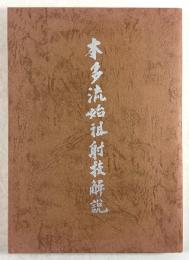 本多流始祖射技解説